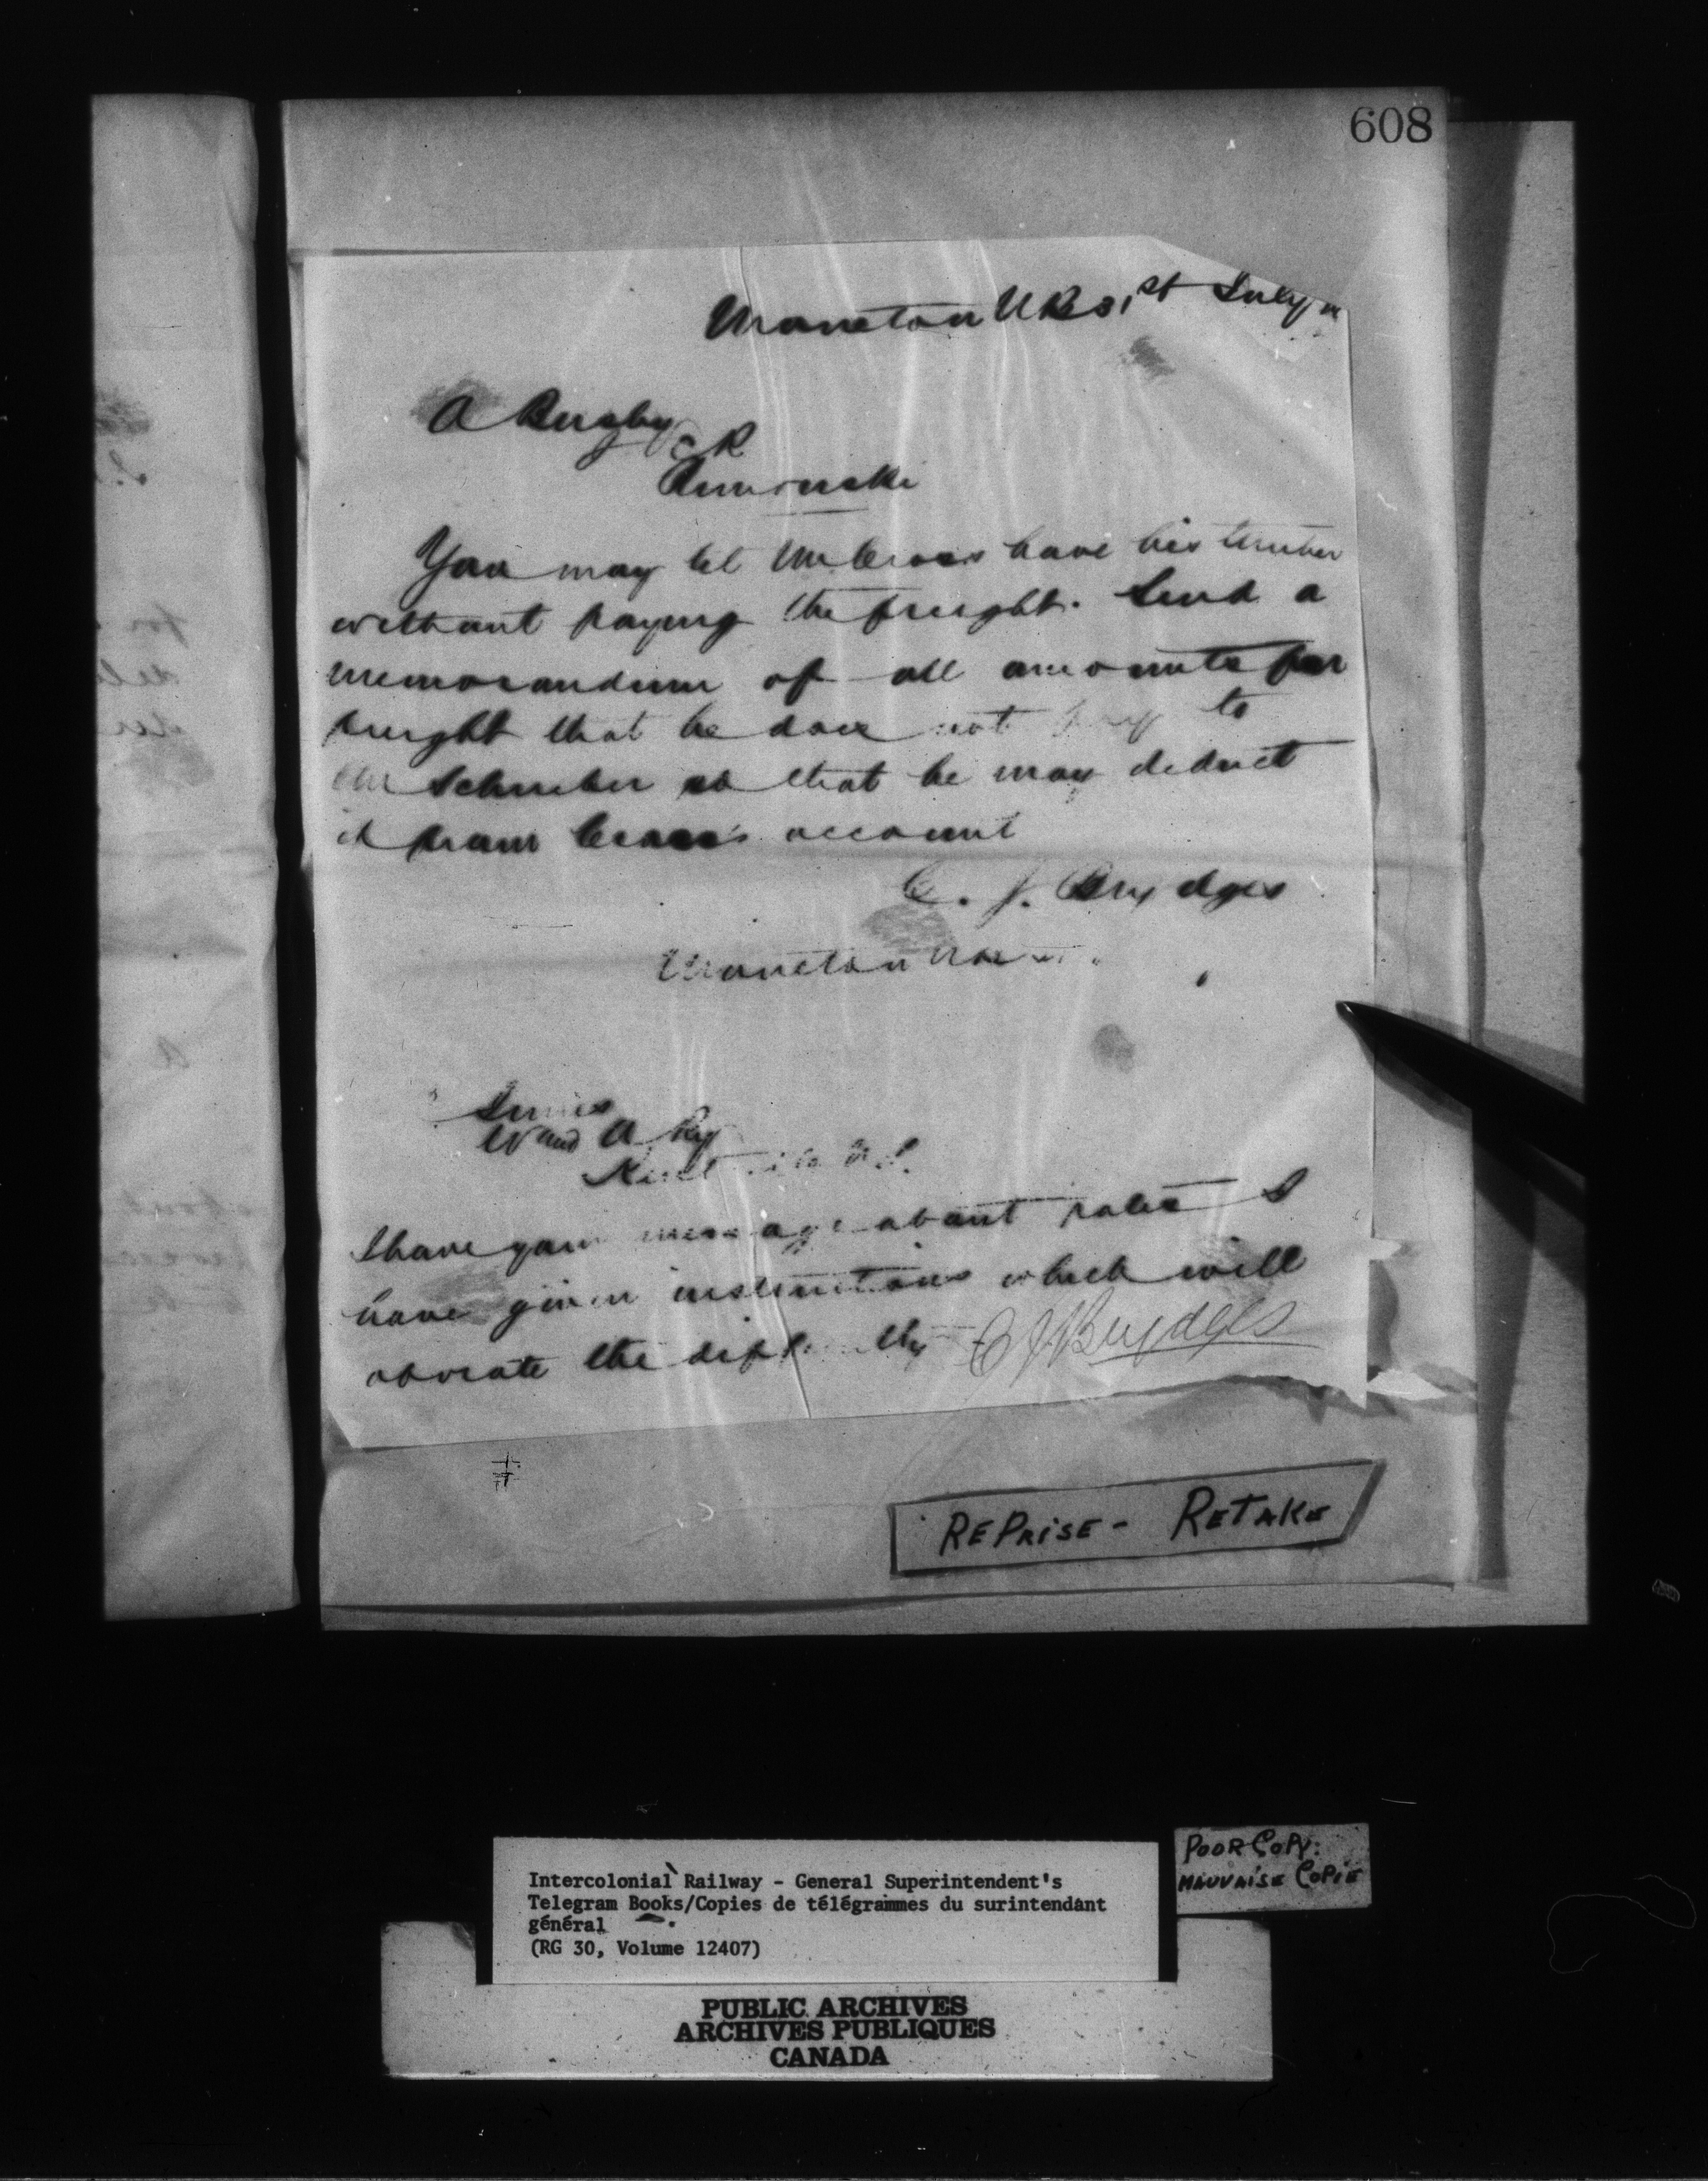 608
Moncton NB 31st July
A Busby
Rimouski
You may let Mr Cross have his timber
without paying the freight. Send a
memorandum of all amounts for
freight that he does not pay to
Mr Schreiber so that he may deduct
it from Cross's account
C. J. Brydges
Moncton
Innes
W and A Ry
Kentville N.S.
I have your message about rates I
have given instructions which will
obviate the difficulty CJBrydges
REPRISE - RETAKE
POOR COPY.
MAUVAISE COPIE
Intercolonial Railway - General Superintendent's
Telegram Books/Copies de télégrammes du surintendant
général
(RG 30, Volume 12407)
PUBLIC ARCHIVES
ARCHIVES PUBLIQUES
CANADA